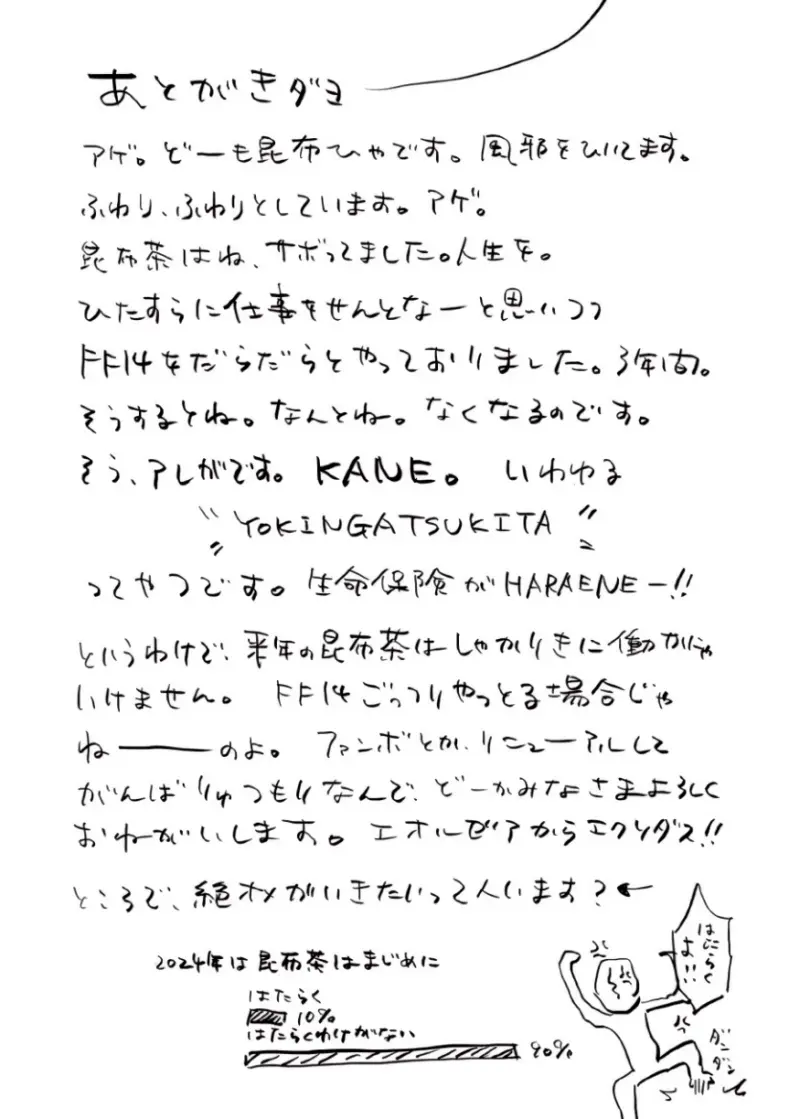 あとがきダヨ
アゲ。どーも昆布ひゃです。風邪をひいてます。
ふわり、ふわりとしています。アゲ。
昆布茶はね、サボってました。人生を。
ひたすらに仕事をせんとなーと思いつつ
FF14をだらだらとやっておりました。3年間。
そうするとね。なんとね。なくなるのです。
そう、アレがです。KANE。いわゆる
"YOKINGATSUKITA"
ってやつです。生命保険がHARAENEー!!
というわけで、来年の昆布茶はしゃかりきに働かにゃ
いけません。FF14ごっつりやっとる場合じゃ
ねーーーのよ。ファンボとか、リニューアルして
がんばりゅつもりなんで、どーかみなさまよろしく
おねがいします。エオルゼアからエクソダス!!
ところで、絶オメガいきたいって人います?←
はたらく
よ!!
2024年は昆布茶はまじめに
はたらく
10%
はたらくわけがない
90%
ダン
ダン